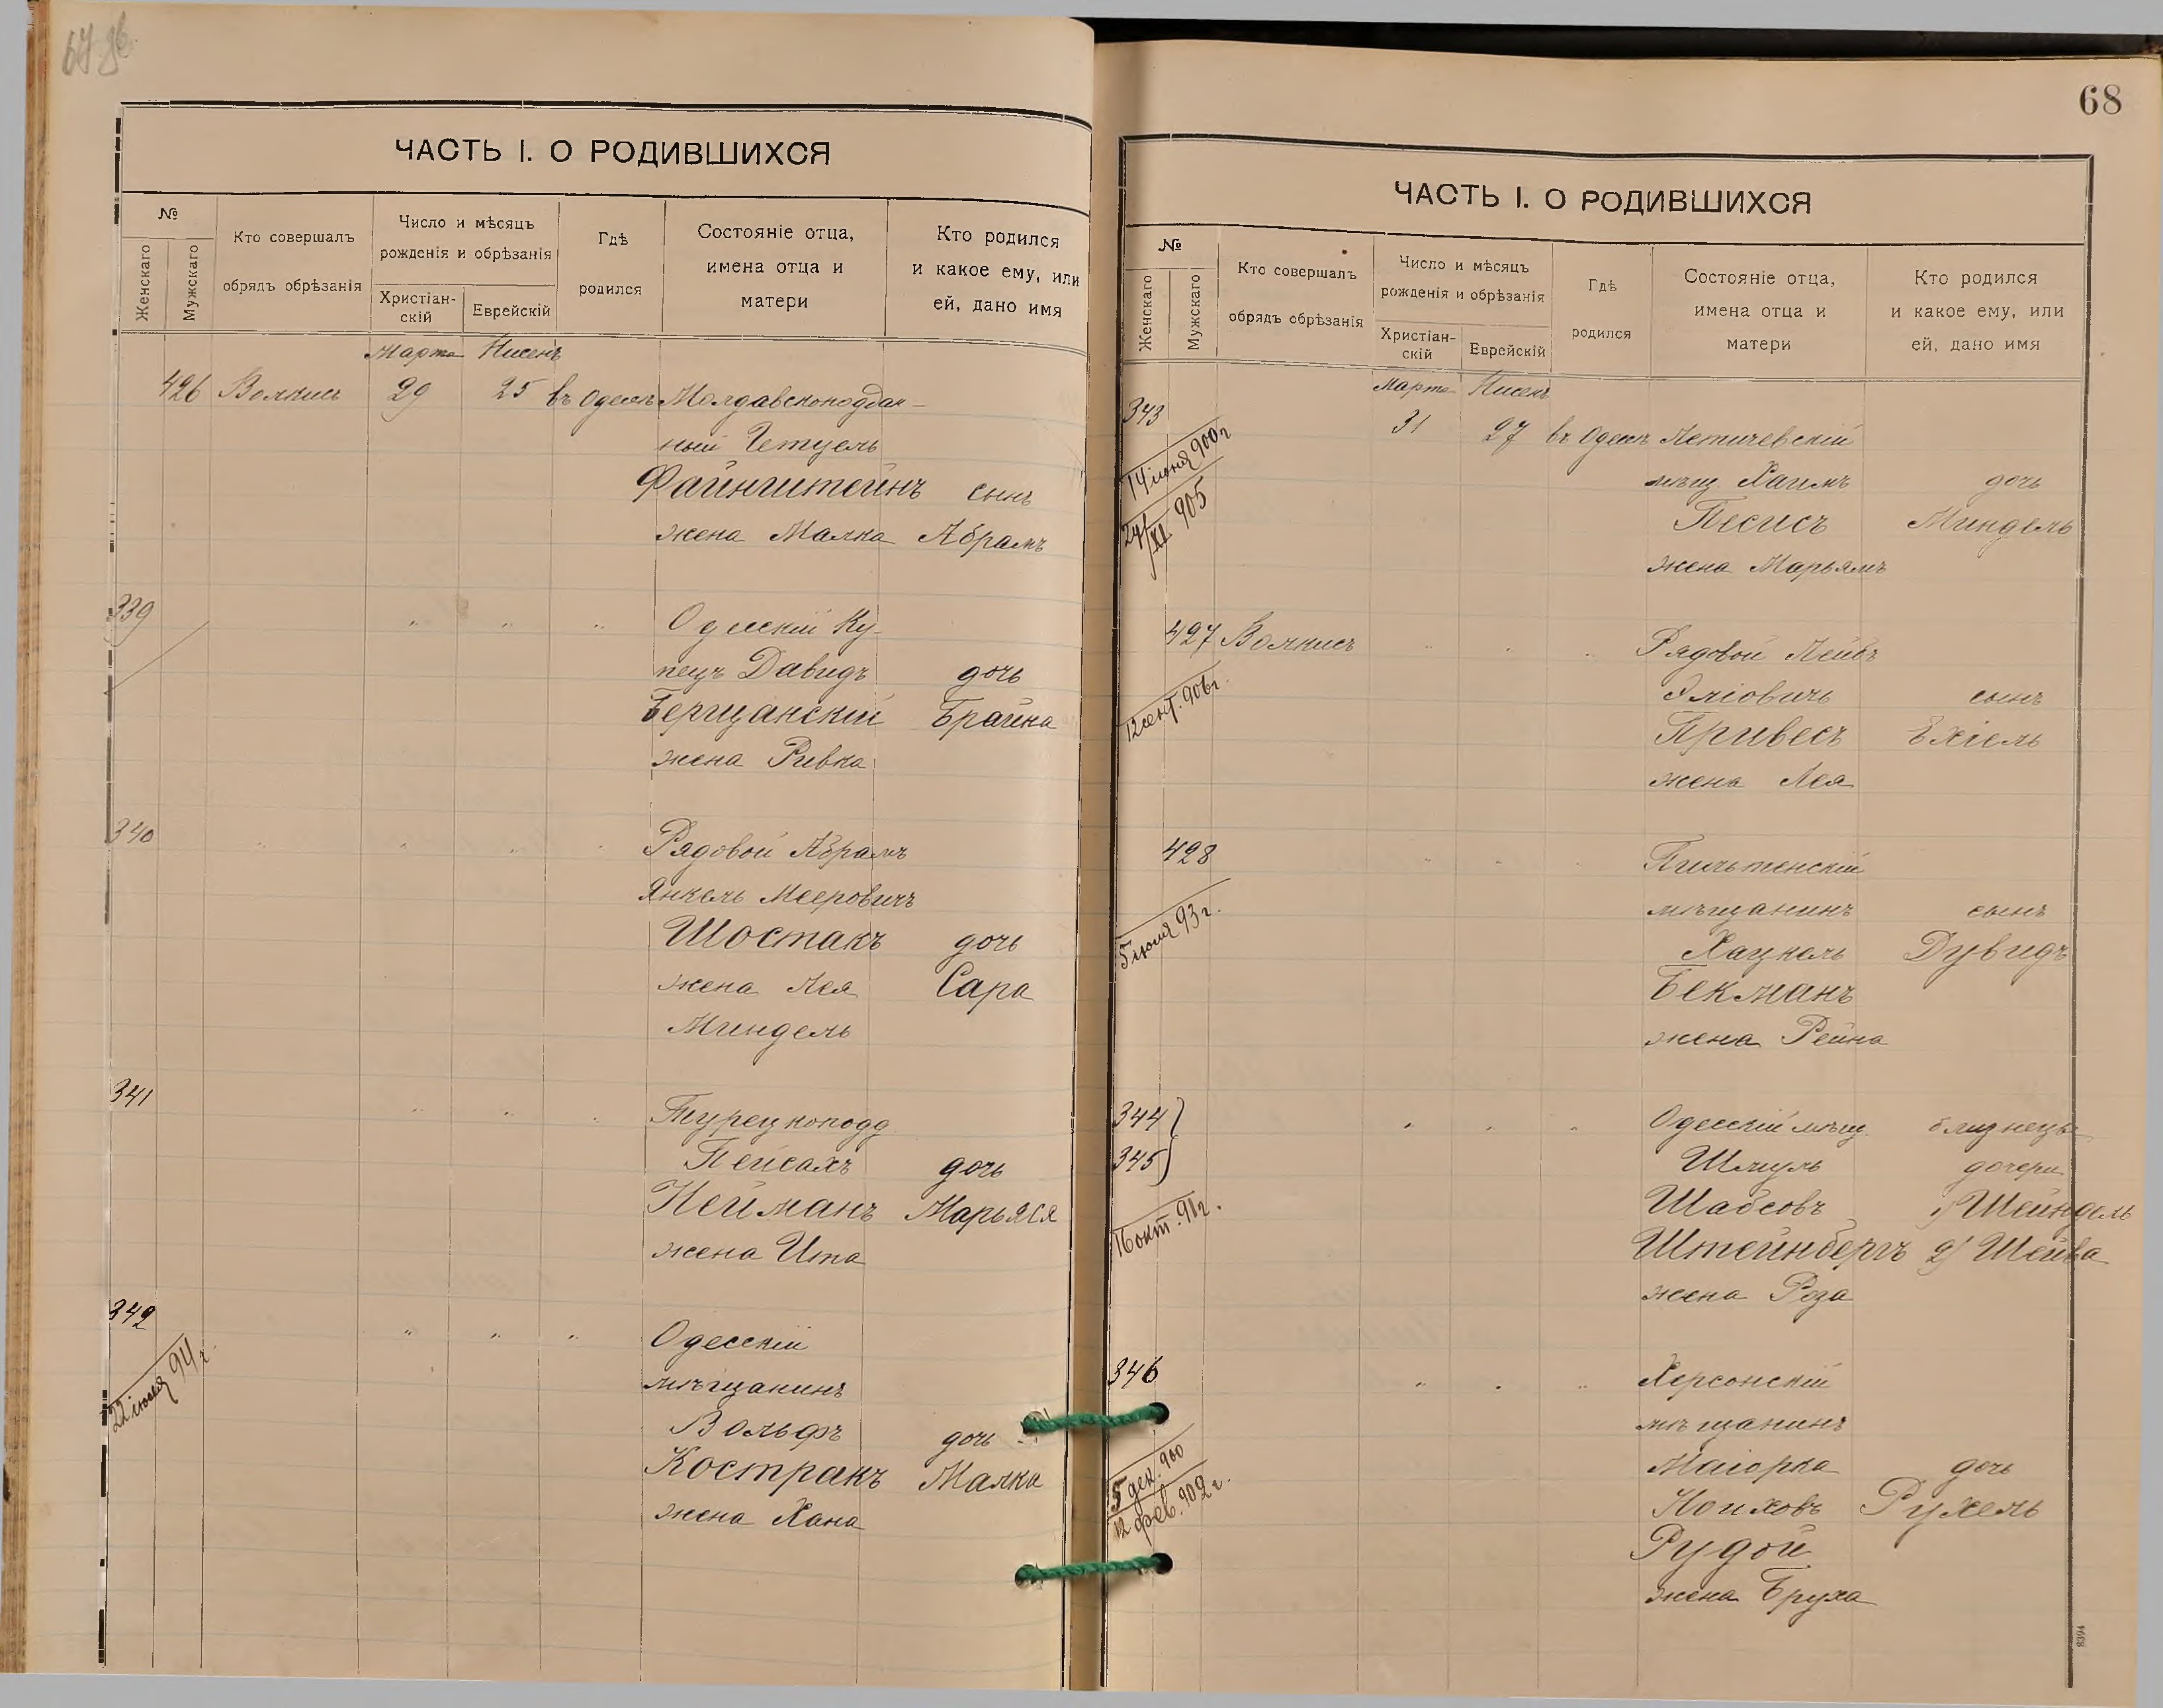 67 об.
ЧАСТЬ I. О РОДИВШИХСЯ
№
Женскаго
Мужскаго
Кто совершалъ
обрядъ обрѣзанія
Число и мѣсяцъ
рожденія и обрѣзанія
Христіан-
скій
Еврейскій
Гдѣ
родился
Состояніе отца,
имена отца и
матери
Кто родился
и какое ему, или
ей, дано имя
Марта Нисенъ
426 Волкисъ 29 25 въ Одессѣ Молдавскоподдан-
ный Гетцель
Файнштейнъ сынъ
жена Малка Абрамъ
339 " " " Одесскій Ку-
пецъ Давидъ дочь
Берщанскій Брайна
жена Ривка
340 " " " " Рядовой Абрамъ
Янкель Мееровичъ
Шостакъ дочь
жена Лея Сара
Миндель
341 " " " Турецкоподд
Пейсахъ дочь
Нейманъ Марьяся
жена Ита
342 " " " Одесскій
22 іюня 94 г. мѣщанинъ
Вольфъ дочь
Костракъ Малка
жена Хана
68
ЧАСТЬ I. О РОДИВШИХСЯ
№
Женскаго
Мужскаго
Кто совершалъ
обрядъ обрѣзанія
Число и мѣсяцъ
рожденія и обрѣзанія
Христіан-
скій
Еврейскій
Гдѣ
родился
Состояніе отца,
имена отца и
матери
Кто родился
и какое ему, или
ей, дано имя
Марта Нисенъ
343 31 27 въ Одессѣ Летичевскій
14 іюня 900 г мѣщ. Хаимъ дочь
24/XI 905 Песисъ Миндель
жена Марьямъ
427 Волкисъ " " " Рядовой Лейбъ
12 сент. 906 г. Эліовичъ сынъ
Привесъ Ехіель
жена Лея
428 " " " Пильтенскій
5 іюля 93 г. мѣщанинъ сынъ
Хацкель Дувидъ
Бекманъ
жена Рейна
344 } " " " Одесскій мѣщ. близнецы
345 } Шмуль дочери
16 окт. 91 г. Шабсовъ 1) Шейндель
Штейнбергъ 2) Шейва
жена Роза
346 " " " Херсонскій
мѣщанинъ
5 дек. 900 Маіорка дочь
12 фев. 902 г. Ноиховъ Рухель
Рудой
жена Бруха
8394